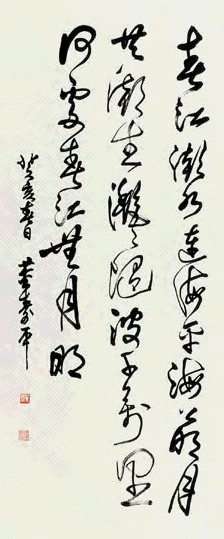 春江潮水連海平海上明月
共潮生灩灩隨波千萬里
何處春江無月明
癸亥春日 董壽平